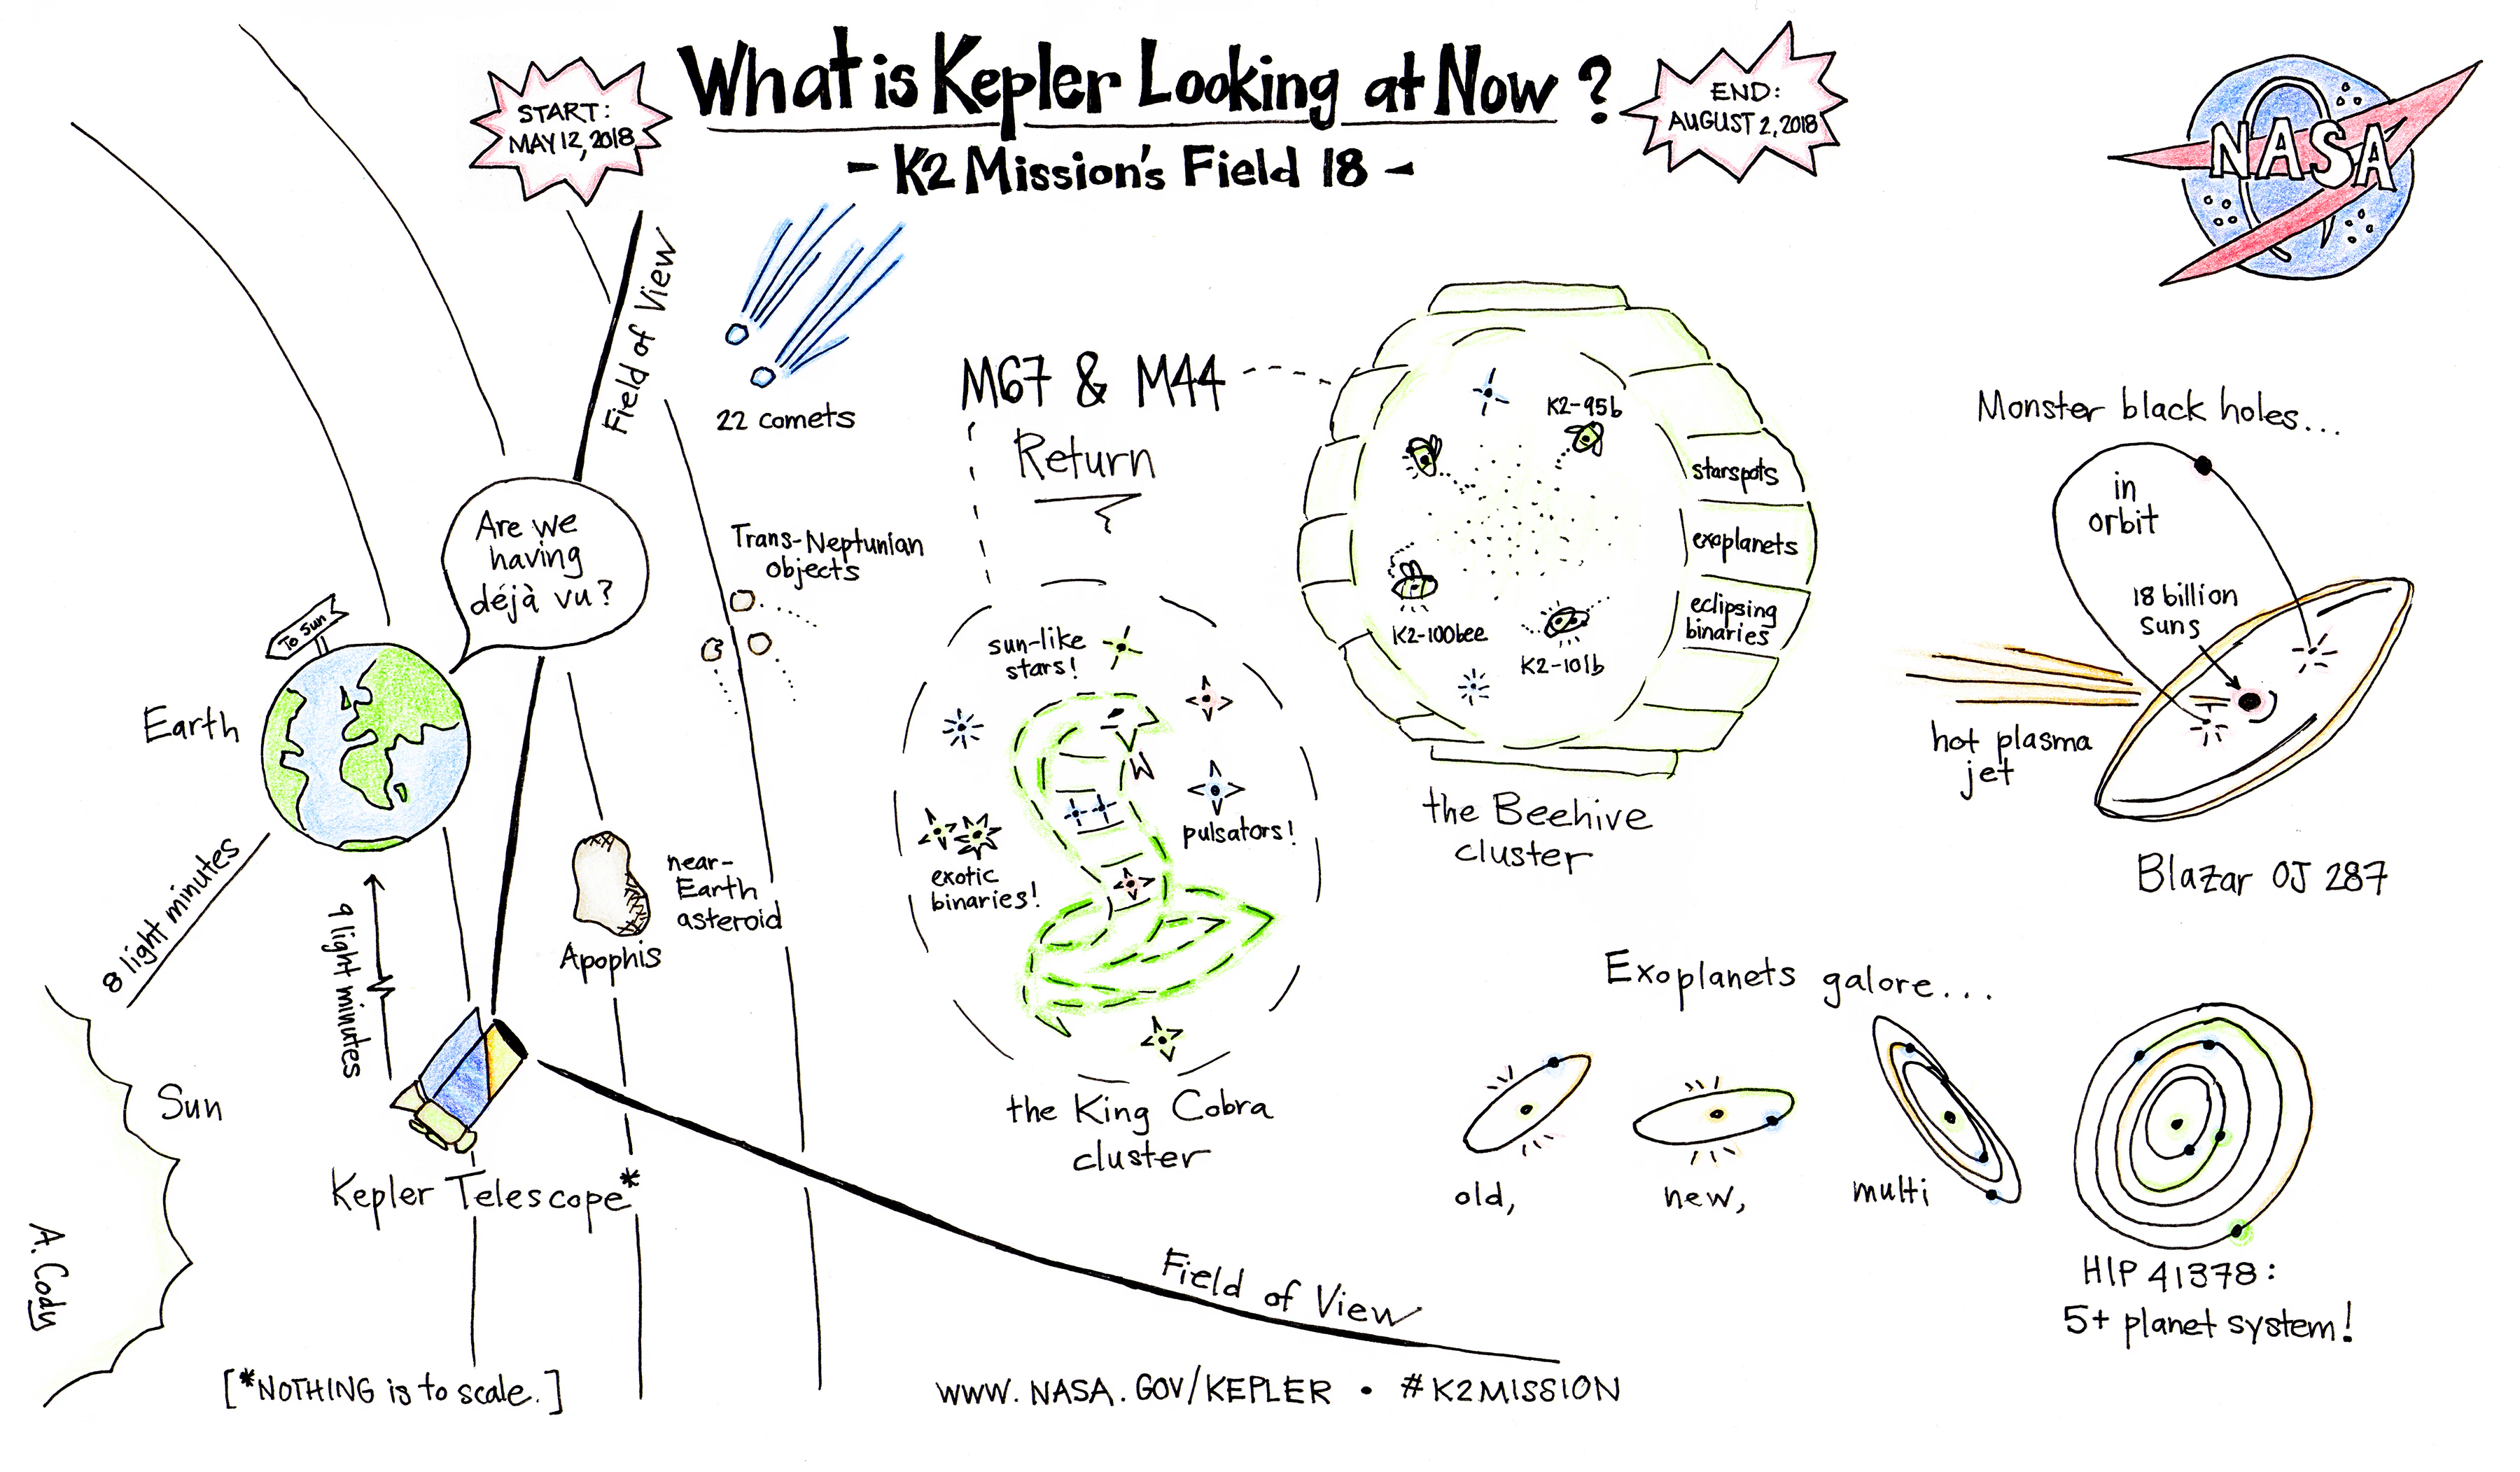 START:
MAY 12, 2018
What is Kepler Looking at Now?
- K2 Mission's Field 18 -
END:
AUGUST 2, 2018
NASA
Field of View
22 comets
Are we
having
déjà vu?
To Sun
Earth
8 light minutes
9 light minutes
Sun
Kepler Telescope*
A. Cody
[*NOTHING is to scale.]
Trans-Neptunian
objects
near-
Earth
asteroid
Apophis
M67 & M44
Return
sun-like
stars!
exotic
binaries!
pulsators!
the King Cobra
cluster
K2-95b
K2-100bee
K2-101b
starspots
exoplanets
eclipsing
binaries
the Beehive
cluster
Monster black holes...
in
orbit
18 billion
suns
hot plasma
jet
Blazar OJ 287
Exoplanets galore...
old,
new,
multi
HIP 41378:
5+ planet system!
Field of View
WWW.NASA.GOV/KEPLER • #K2MISSION